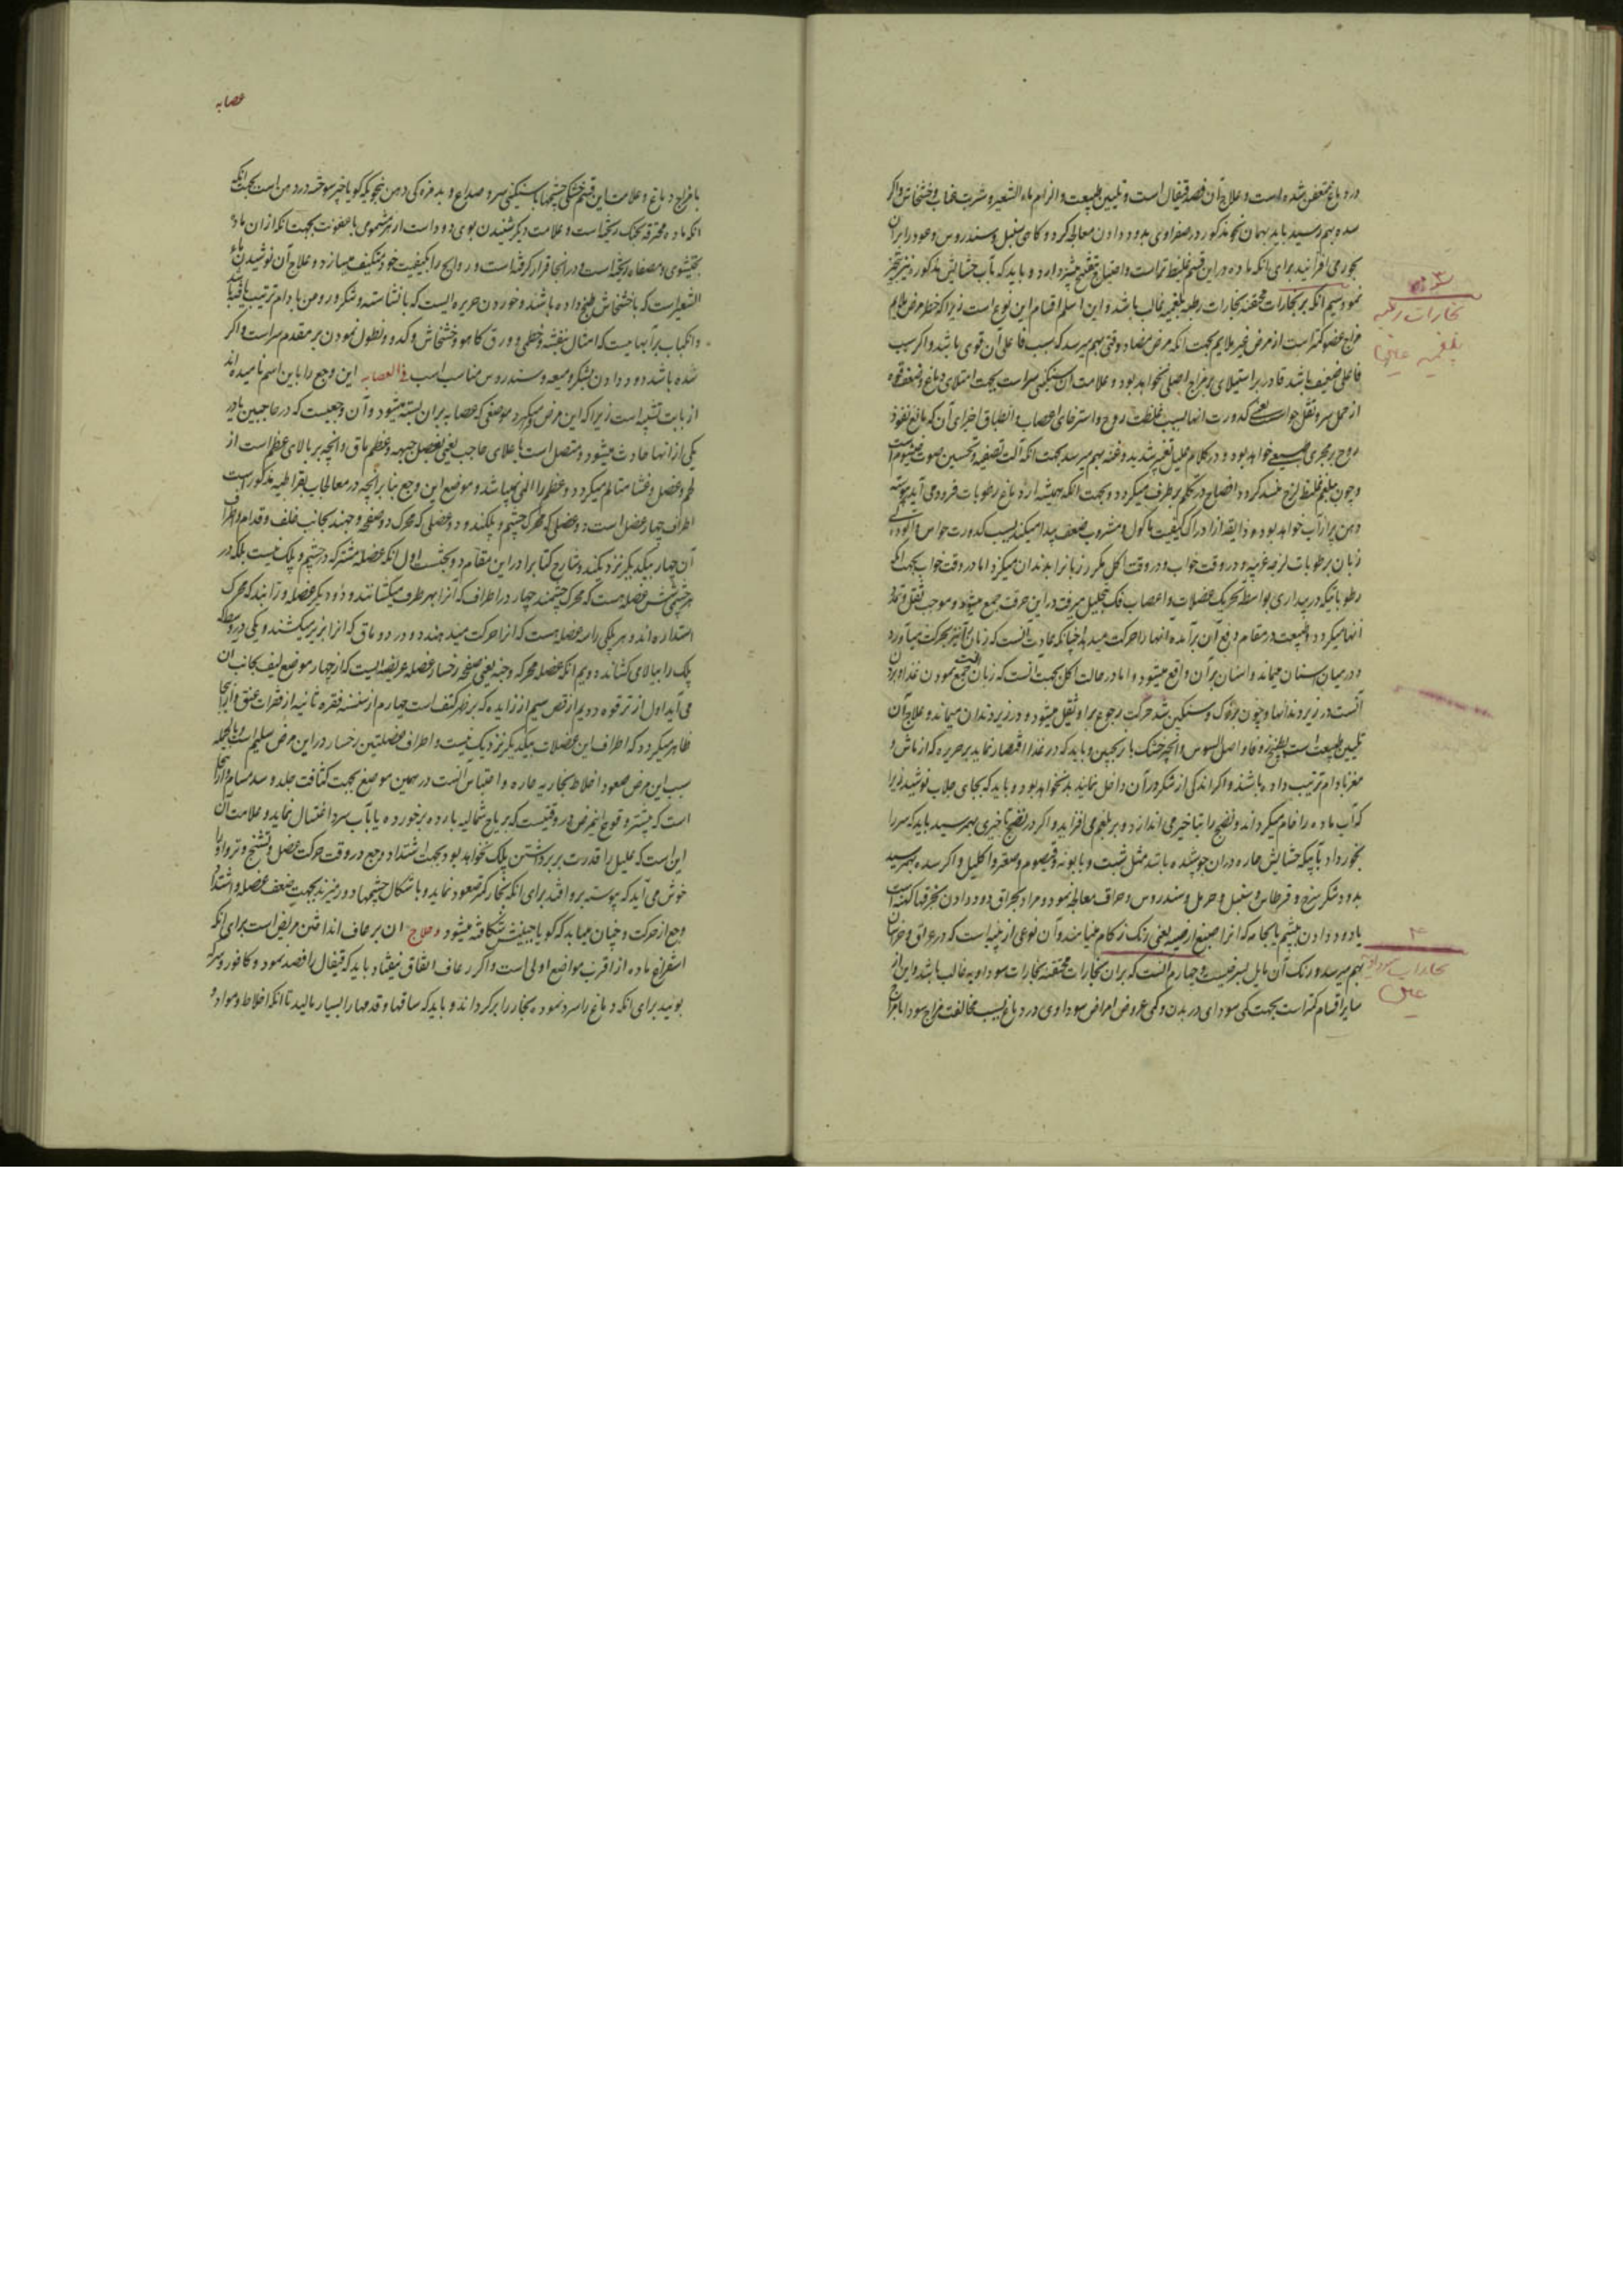 در دماغ متعفن شده است و علاج آن فصد قیفال است و تلیین طبیعت و الزام ماء الشعیر و شربت عناب و خشخاش و اگر
سده بهم رسید باید بهمان نحو مذکور در صفراوی بدود دادن معالجه کرد و کاهی سنبل و سندروس و عود را بران
بخور می افزانید برای انکه ماده در این قسم غلیظ تر است و احتیاج بتفتیح بیشتر دارد و باید که بآب حشایش مذکور نیز تبخیر
نمود سیم انکه بر بخارات محتقنه بخارات رطبه بلغمیه غالب باشد و این اسلم اقسام این نوع است زیرا که خطر مرض ملایم
مزاج عضو کمتر است از مرض غیر ملایم بجهت انکه مرض مضاد وقتی بهم میرسد که سبب فاعلی آن قوی باشد و اگر سبب
فاعلی ضعیف باشد قادر بر استیلای بر مزاج اصلی نخواهد بود و علامت آن سنگینی سر است بجهت امتلای دماغ و ضعف قوه
از حمل سر و ثقل حواس یعنی کدورت انها بسبب غلظت روح و استرخای اعصاب و انطباق اجزای آن که مانع نفوذ
روح بر مجری طبیعی خواهد بود و در کلام علیل تغیر شدید و غنه بهم میرسد بجهت انکه آلت تصفیه و تحسین صوت خیشوم است
و چون ببلغم غلیظ لزج منسد کردد افصاح در تکلم بر طرف میکردد و بجهت انکه همیشه از دماغ رطوبات فرود می آید پیوسته
دهن پر از آب خواهد بود و ذایقه از ادراک کیفیت ماکول و مشروب ضعف پیدا میکند بسبب کدورت حواس و آلوده
زبان برطوبات لزجه غریبه و در وقت خواب و در وقت اکل مکرر زبانرا بدندان میکزد اما در وقت خواب بجهت انکه
رطوباتیکه در بیداری بواسطه تحریک عضلات و اعصاب فک بتحلیل میرفت در این حرفت جمع میشود و موجب ثقل و تمدد
انها میکردد و طبیعت در مقام دفع آن برآمده انها را حرکت میدهد چنانکه عادت آنست که زبان نیز بحرکت میآورد
و در میان اسنان میماند و اسنان بر آن واقع میشود و اما در حالت اکل بجهت انست که زبان جمع نمودن غذا و بردن
آنست در زیر دندانها و چون متروک و سنگین شد حرکت رجوع براو ثقیل میشود و در زیر دندان میماند و علاج آن
تلیین طبیعت است بطبیخ زوفا و اصل السوس و انجیر خشک با ترنجبین و باید که در غذا اقتصار نماید بر حریره که از ماش و
مغز بادام ترتیب داده باشند و اکر اندکی از شکر در آن داخل نمایند بد نخواهد بود و باید که بجای جلاب نوشیدن زیرا
که آب ماده را خام میکرداند و نضج را بتاخیر می اندازد و بر بلغم می افزاید و اکر در نضج تاخیری بهم رسید باید که سر را
بخور داد بآبیکه حشایش حاره دران جوشیده باشد مثل شبت و بابونه و قیصوم و صعتر و اکلیل و اکر سده بهم رسید
بدود شکر سرخ و قرطاس و سنبل و حرمل و سندروس و حراق معالجه نمود و مراد بحراق دود دادن بخرقهای کهنه است
یا دود دادن بپشم یا بجامه که انرا صبغ ارضیه یعنی رنک زکام مینامند و آن نوعی از پنبه است که در عراق و خراسان
بهم میرسد و رنک آن مایل بسرخیست و چهارم انست که بران بخارات محتقنه بخارات سوداویه غالب باشد و این از
سایر اقسام کمتر است بجهت کمی سودای در بدن و کمی عروض امراض سوداوی در دماغ بسبب مخالفت مزاج سودا با مزاج
۳
بخارات رطبه
بلغمیه
۴
بخارات سوداویه
عصابه
با مزاج دماغ و علامت این قسم خشکی چشمها با سنگینی سر و صداع و بد مزه کی دهن بنحویکه کویا چیز سوخته در دهن است بجهت انکه
انکه ماده محترقه بحنک ریخته است و علامت دیکر شنیدن بوی دود است از هر مشمومی با عفونت بجهت انکه از ان ماده
بخیشوم و مصفاه ریخته است و در انجا قرار کرفته است و روایح را بکیفیت خود متکیف میسازد و علاج آن نوشیدن ماء
الشعیر است که با خشخاش طبخ داده باشند و خوردن حریره ایست که با نشاسته و شکر و روغن بادام ترتیب یافته باشد
و انکباب بر آبهاییست که امثال بنفشه و خطمی و ورق کاهو و خشخاش و کدو و نطول نمودن بر مقدم سر است و اکر
شده باشد دود دادن بشکر و میعه و سندروس مناسب است فی العصابه این وجع را باین اسم نامیده اند
از بابت تشبیه است زیرا که این مرض میکیرد موضعی که عصابه بران بسته میشود و آن وجعیست که در حاجبین یا در
یکی از انها حادث میشود و متصل است باعلای حاجب یعنی بعضل جبهه و عظم ماق و انچه بر بالای عظم است از
لحم و عضل و غشا متالم میکردد و عظم را المی نمیباشد و موضع این وجع بنا بر انچه در معالجات بقراطیه مذکور است
اطراف چهار عضل است دو عضلی که محرک چشم و پلکند و دو عضلی که محرک دو صفحه وجهند بجانب خلف و قدام و اطراف
آن چهار بیکدیگر نزدیکند و شارح کتاب را در این مقام دو بحث است اول انکه عضله مشترکه در چشم و پلک نیست بلکه در
هر چشمی شش عضله هست که محرک چشمند چهار در اطراف که انرا بهر طرف میکشانند و دو دیگر عضله مورّبند که محرک
استداره اند و هر پلکی را سه عضله هست که انرا حرکت میدهند دو در دو ماق که انرا بزیر میکشند و یکی در وسط که
پلک را ببالا میکشاند دویم انکه عضله محرکه وجنه یعنی صفحه رخسار عضله عریضه ایست که از چهار موضع لیف بجانب ان
می آید اول از ترقوه دویم از قص سیم از زایده که بر ظهر کتف است چهارم از سنسنه فقره ثانیه از فقرات عنق و از اینجا
ظاهر میکردد که اطراف این عضلات بیکدیگر نزدیک نیست و اطراف عضلتین رخسار در این مرض سلیم است و بالجمله
سبب این مرض صعود اخلاط بخاریه حاره و احتباس انست در همین موضع بجهت کثافت جلد و سد مسام و از اینجا
است که بیشتر وقوع اینمرض در وقتیست که بریاح شمالیه بارده برخورده یا بآب سرد اغتسال نماید و علامت آن
این است که علیل را قدرت بر برداشتن پلک نخواهد بود بجهت اشتداد وجع در وقت حرکت عضل و تشنج و تر او را
خوش می آید که پیوسته برو افتد برای انکه بخار کمتر صعود نماید و باشکال چشمها دور میزند بجهت ضعف عضله و اشتداد
وجع از حرکت و چنان میابد که کویا جبینش شکافته میشود و علاج ان برعاف انداختن مریض است برای انکه
استفراغ ماده از اقرب مواضع اولی است و اکر رعاف اتفاق نیفتاد باید که قیفال را فصد نمود و کافور و سرکه
بوئید برای انکه دماغ را سرد نموده بخار را برکرداند و باید که ساقها و قدمها را بسیار مالید تا انکه اخلاط و مواد و